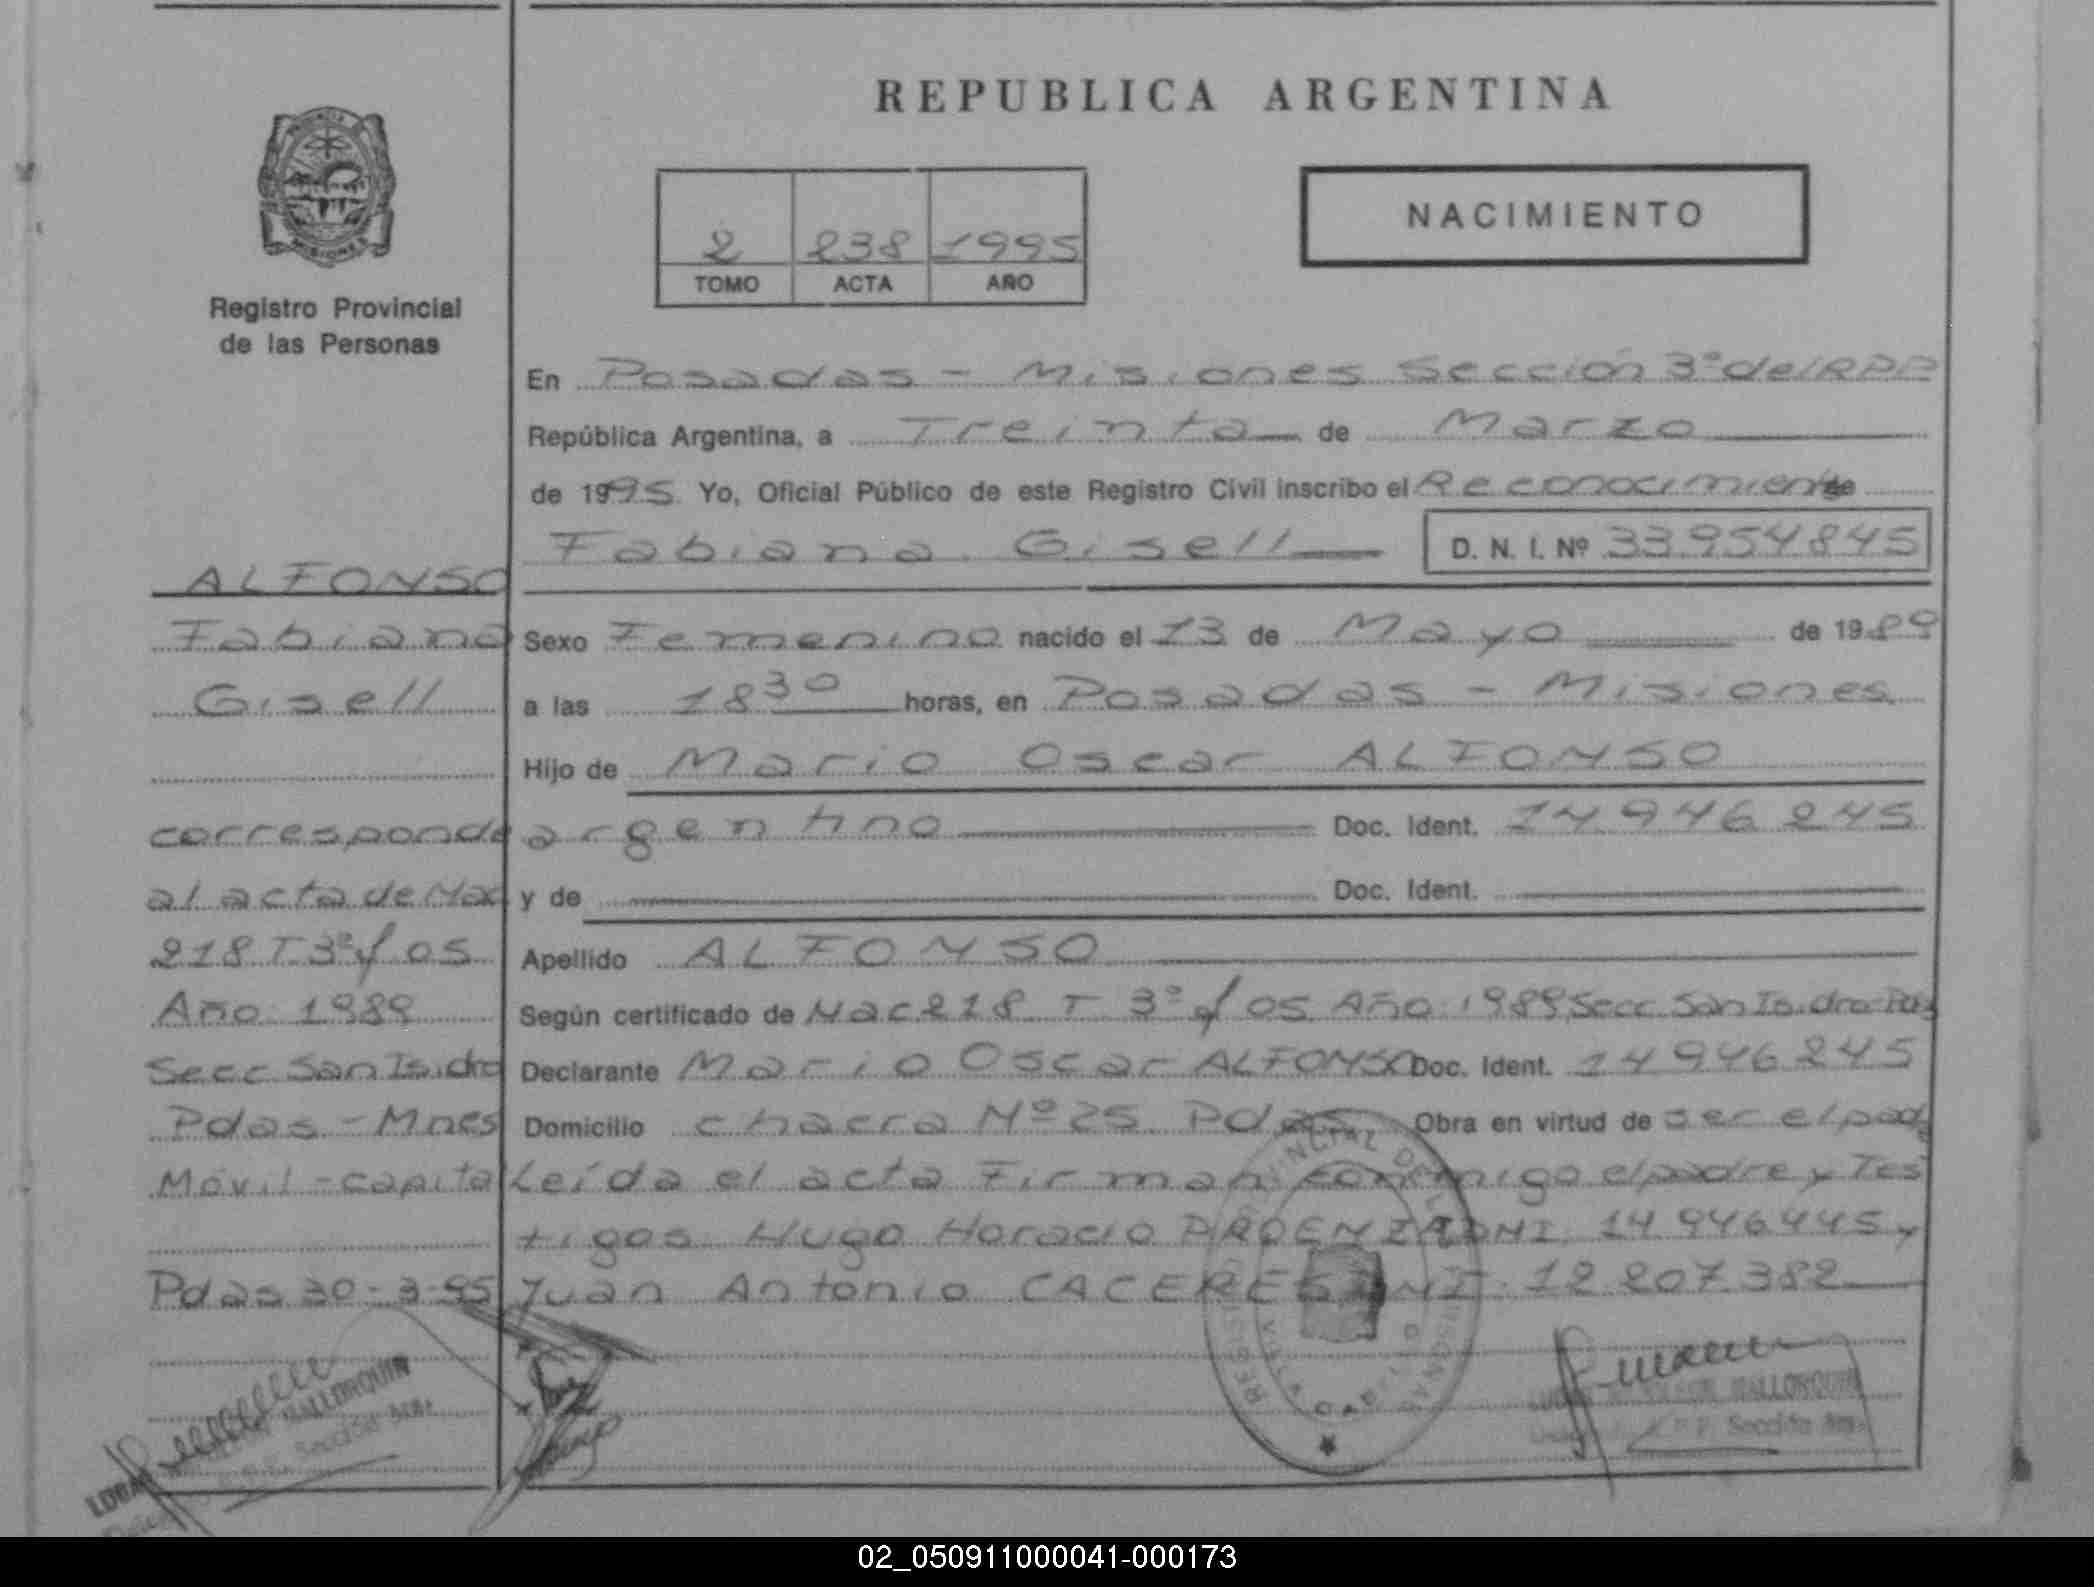 REPUBLICA ARGENTINA
PROVINCIA
MISIONES
Registro Provincial
de las Personas
2 238 1995
TOMO ACTA AÑO
NACIMIENTO
En Posadas - Misiones Sección 3º del RPP
República Argentina, a Treinta de Marzo
de 1995 Yo, Oficial Público de este Registro Civil inscribo el Reconocimiento de
Fabiana Gisell D. N. I. Nº 33.954.845
ALFONSO
Fabiana
Gisell
corresponde
al acta de Nac
218 T 3º y 05
Año 1989
Secc San Isidro
Pdas - Mnes
Móvil - capital
Pdas 30-3-95
Sexo Femenino nacido el 13 de Mayo de 1989
a las 18 30 horas, en Posadas - Misiones
Hijo de Mario Oscar ALFONSO
argentino Doc. Ident. 14.946.245
y de Doc. Ident.
Apellido ALFONSO
Según certificado de Nac 218 T 3º y 05 Año 1989 Secc San Isidro Pdas
Declarante Mario Oscar ALFONSO Doc. Ident. 14 946 245
Domicilio chacra Nº 25 Pdas Obra en virtud de ser el padre
Leída el acta Firman conmigo el padre y Tes
tigos Hugo Horacio PROENZA DNI 14 946 445 y
Juan Antonio CACERES DNI 12 207 382
MALLORQUIN
Sección
MALLORQUIN
Sección
02_050911000041-000173